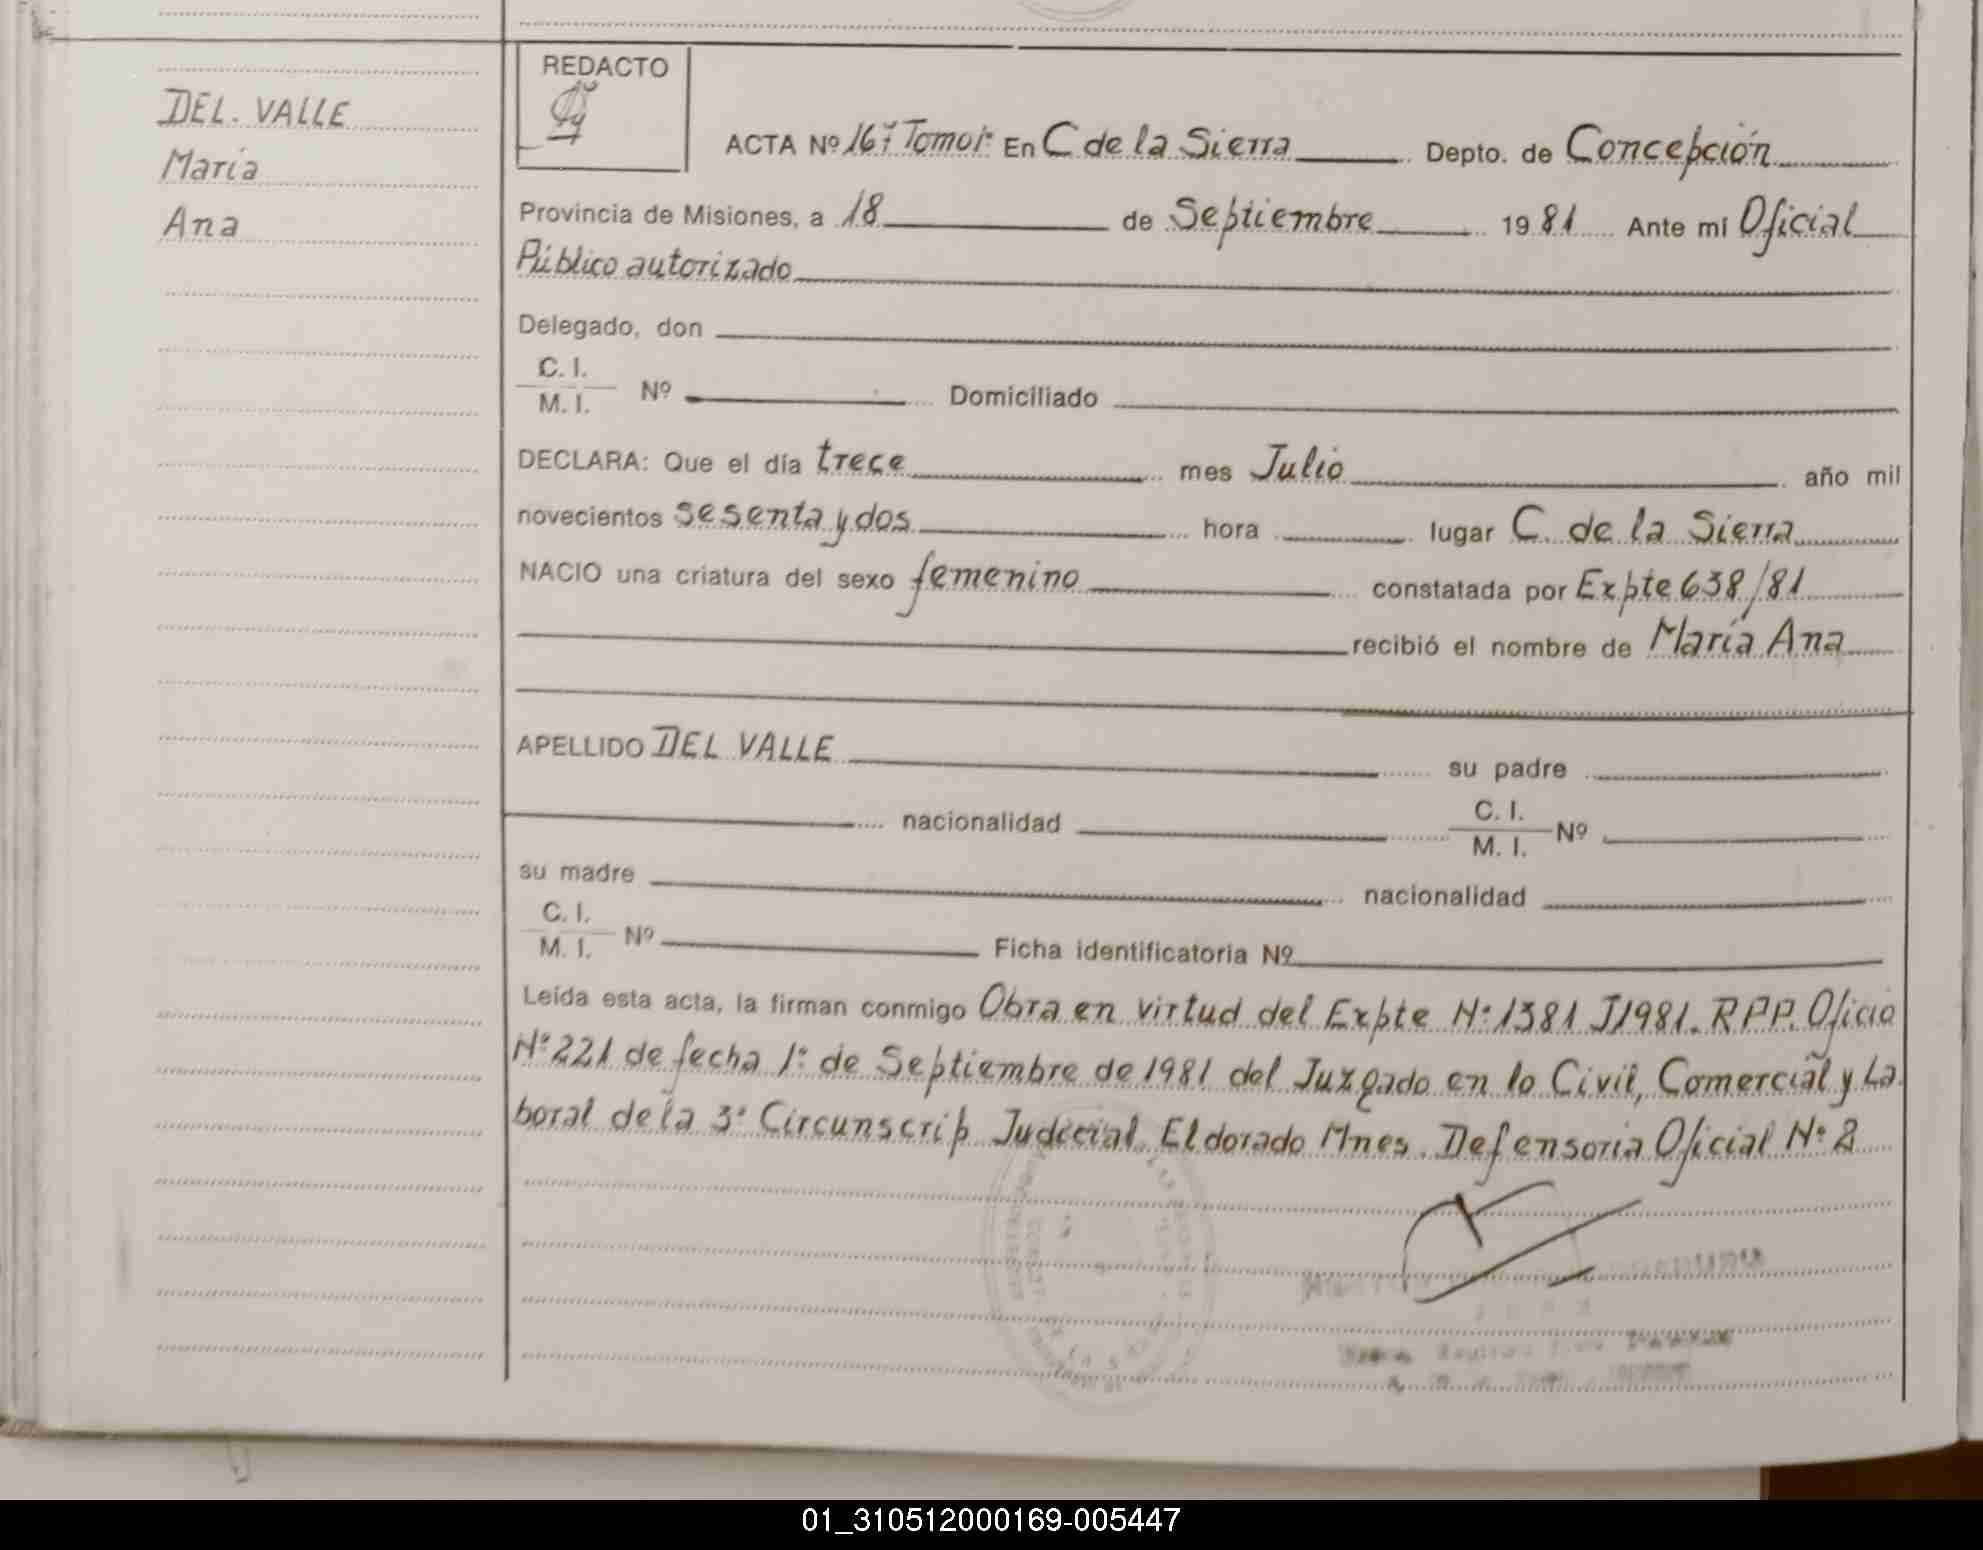 DEL. VALLE
María
Ana
REDACTO
ACTA Nº 167 Tomo 1º En C de la Sierra Depto. de Concepción
Provincia de Misiones, a 18 de Septiembre 1981 Ante mí Oficial
Público autorizado
Delegado, don
C. I.
M. I. Nº Domiciliado
DECLARA: Que el día trece mes Julio año mil
novecientos sesenta y dos hora lugar C. de la Sierra
NACIO una criatura del sexo femenino constatada por Expte 638/81
recibió el nombre de María Ana
APELLIDO DEL VALLE su padre
nacionalidad C. I.
M. I. Nº
su madre nacionalidad
C. I.
M. I. Nº Ficha identificatoria Nº
Leída esta acta, la firman conmigo Obra en virtud del Expte Nº 1381 J1981. RPP. Oficio
Nº 221 de fecha 1º de Septiembre de 1981 del Juzgado en lo Civil, Comercial y La
boral de la 3ª Circunscrip Judicial. Eldorado Mnes. Defensoria Oficial Nº 2
01_310512000169-005447